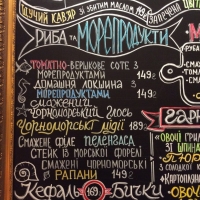 ЗІ ЗБИТИМ МАСЛОМ
РИБА ТА МОРЕПРОДУКТИ
ТОМАТНО-ВЕРШКОВЕ СОТЕ З
МОРЕПРОДУКТАМИ 149₴
ДОМАШНЯ ЛОКШИНА З
МОРЕПРОДУКТАМИ
СМАЖЕНИЙ
ЧОРНОМОРСЬКИЙ
ЧОРНОМОРСЬКІ МІДІЇ 189₴
СМАЖЕНЕ ФІЛЕ ПЕЛЕНГАСА
СТЕЙК ІЗ МОРСЬКОЇ ФОРЕЛІ
СМАЖЕНІ ЧОРНОМОРСЬКІ
РАПАНИ 149₴
КЕФАЛЬ 169 БИЧКИ
ГАР
ОВОЧІ ГРИЛ
ЗІ ШПИНА
КАРТОПЛЯН